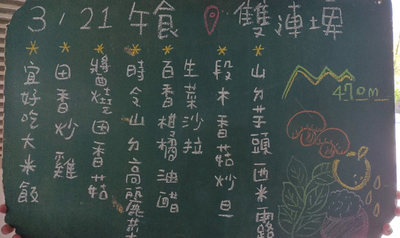 3/21 午食 雙連埤
山ㄉ芋頭西米露
段木香菇炒旦
生菜沙拉
百香橙橘油醋
時令山ㄉ高麗菜
醬燒田香菇
田香炒雞
宜好吃大米飯
470m